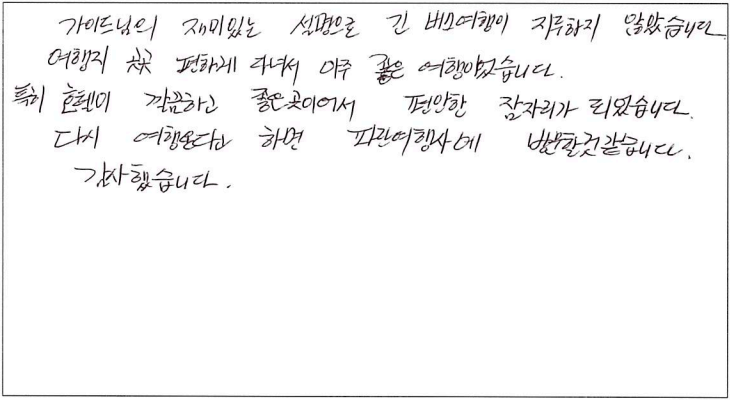 가이드님의 재미있는 설명으로 긴 버스여행이 지루하지 않았습니다
여행지 곳곳 편하게 다녀서 아주 좋은 여행이었습니다.
특히 호텔이 깔끔하고 좋은곳이어서 편안한 잠자리가 되었습니다.
다시 여행온다고 하면 파란여행사에 방문할것같습니다.
감사했습니다.